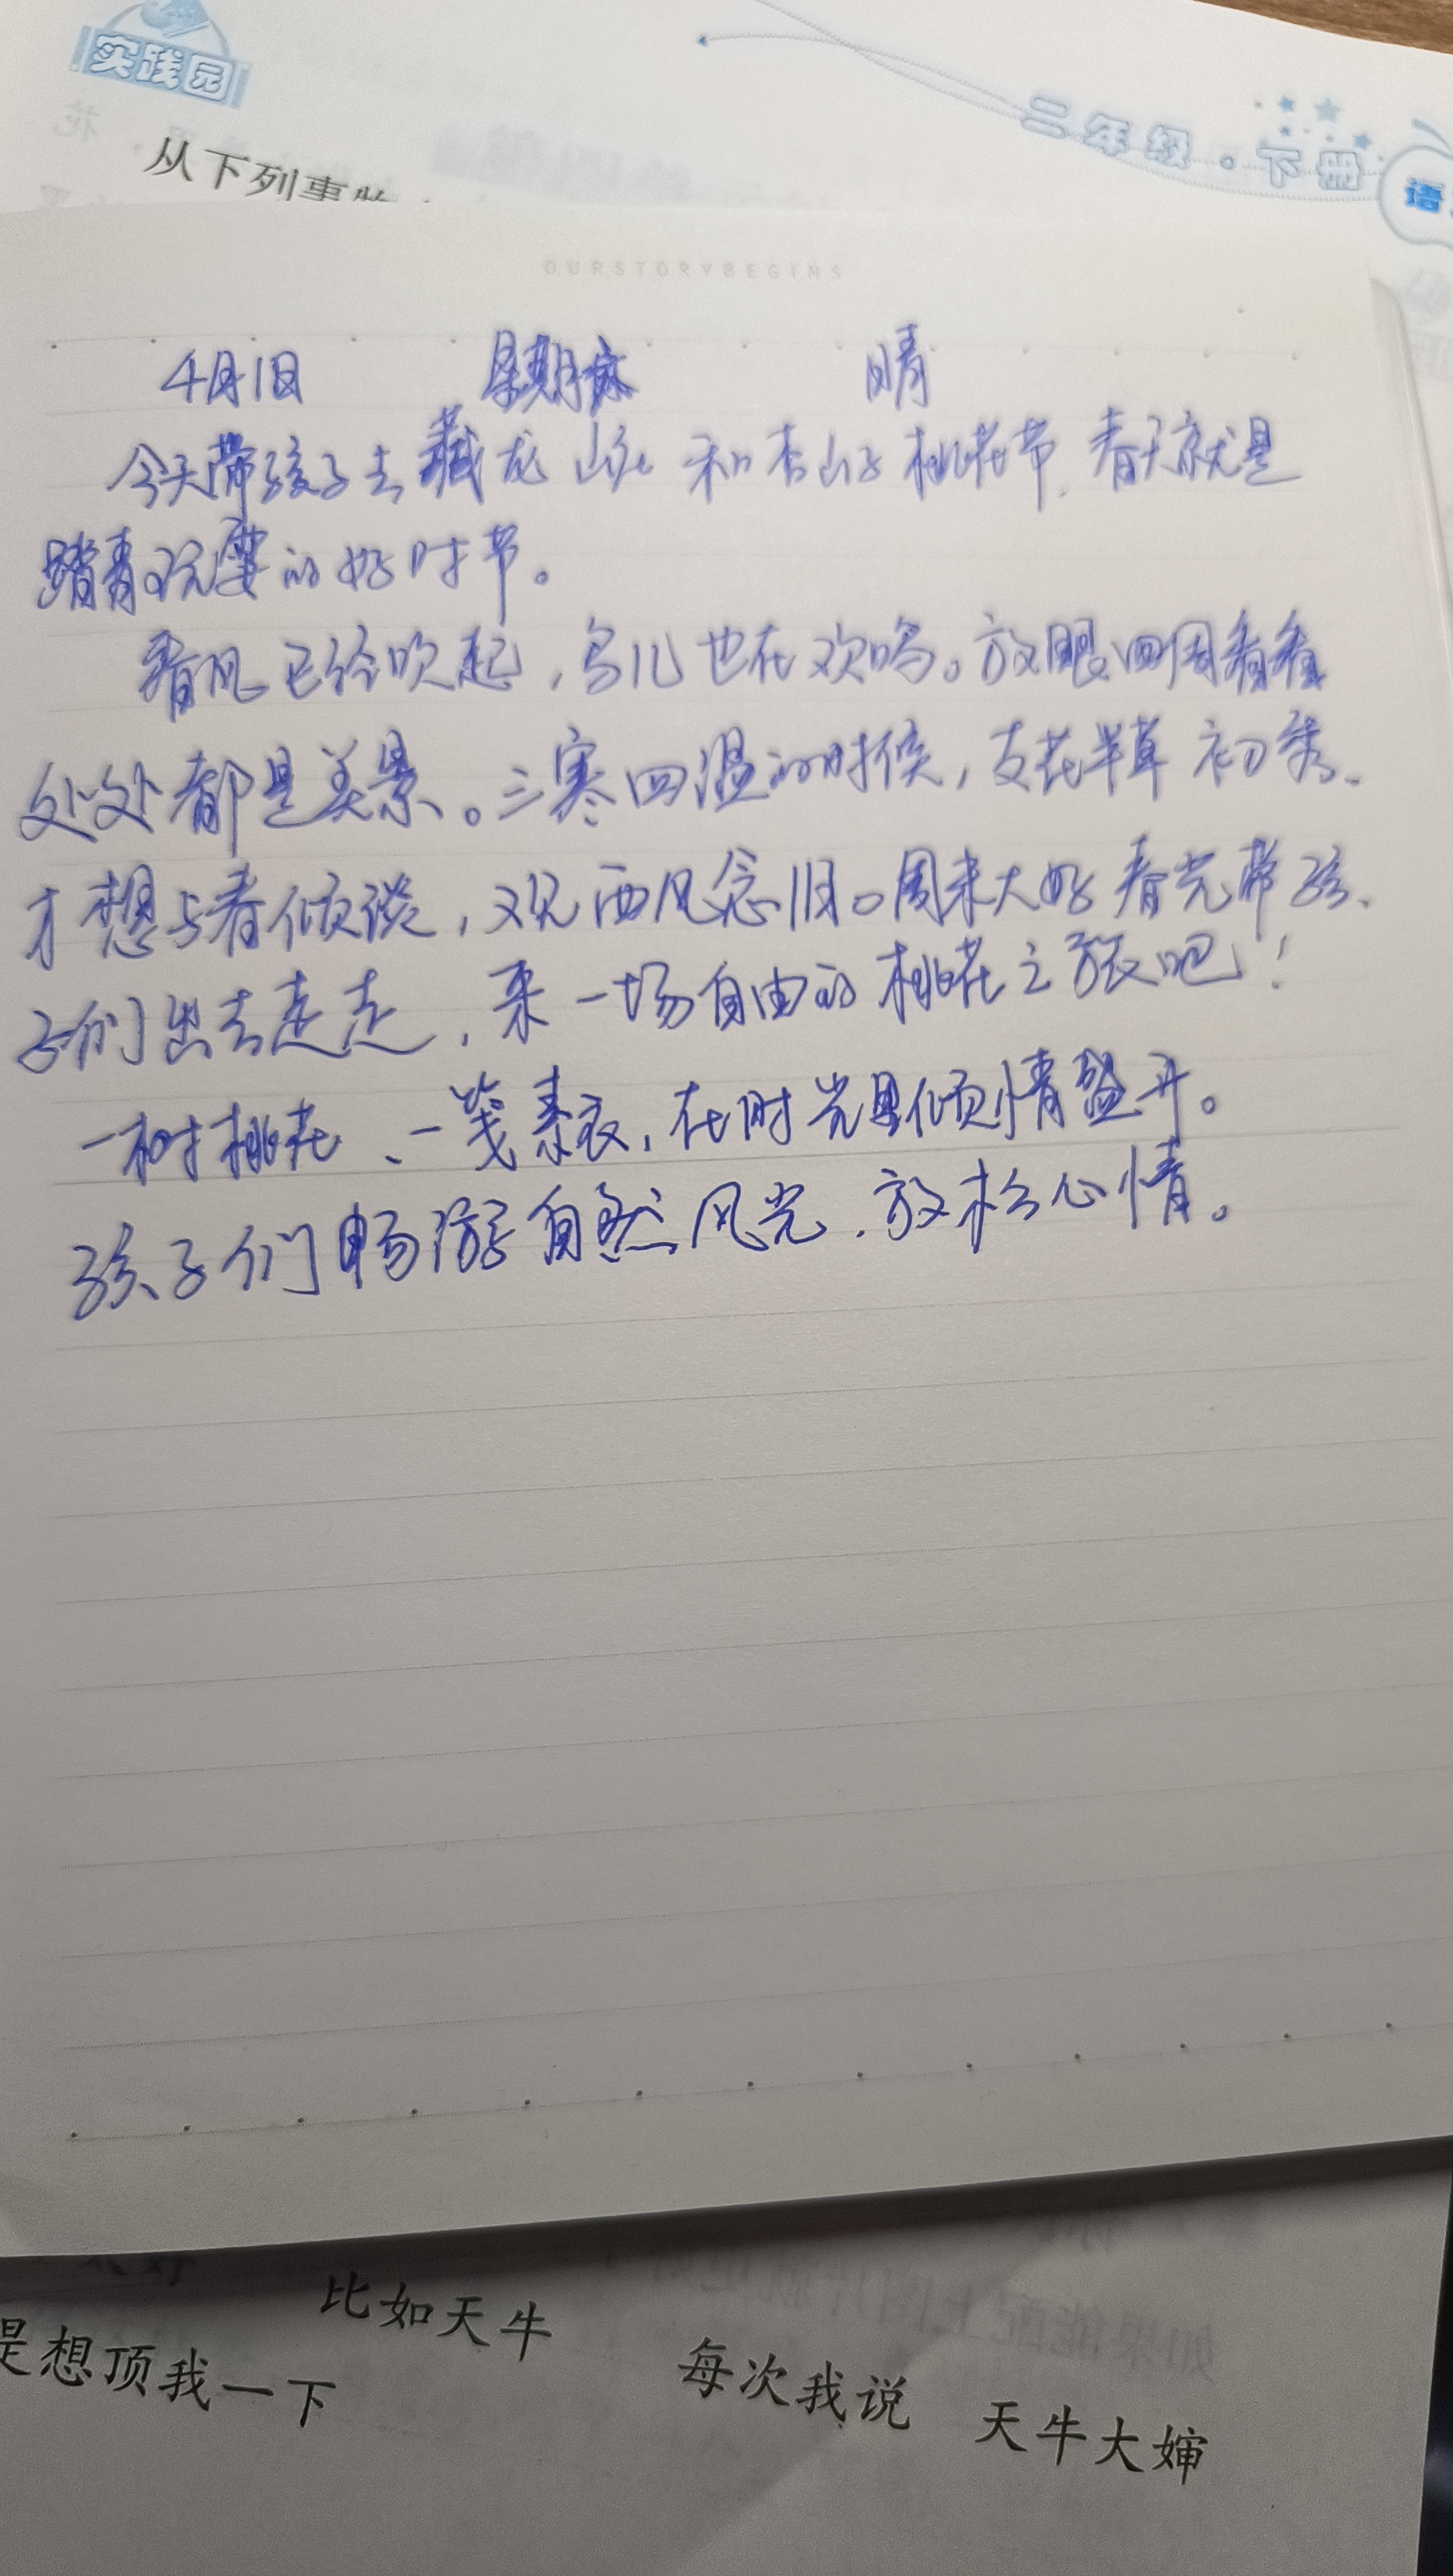 实践园
二年级·下册
语
从下列事物
OURSTORYBEGINS
4月1日 星期六 晴
今天带孩子去藏龙山庄和杏山子桃花节,春天就是
踏青观摩的好时节。
春风已经吹起,鸟儿也在欢鸣。放眼四周看看
处处都是美景。三寒四温的时候,支花半草初绣、
才想与春倾谈,又见西风念旧。周末大好春光带孩、
子们出去走走,来一场自由的桃花之旅吧!
一树桃花、一笺素衣,在时光里倾情盛开。
孩子们畅游自然风光,放松心情。
比如天牛
是想顶我一下
每次我说 天牛大婶